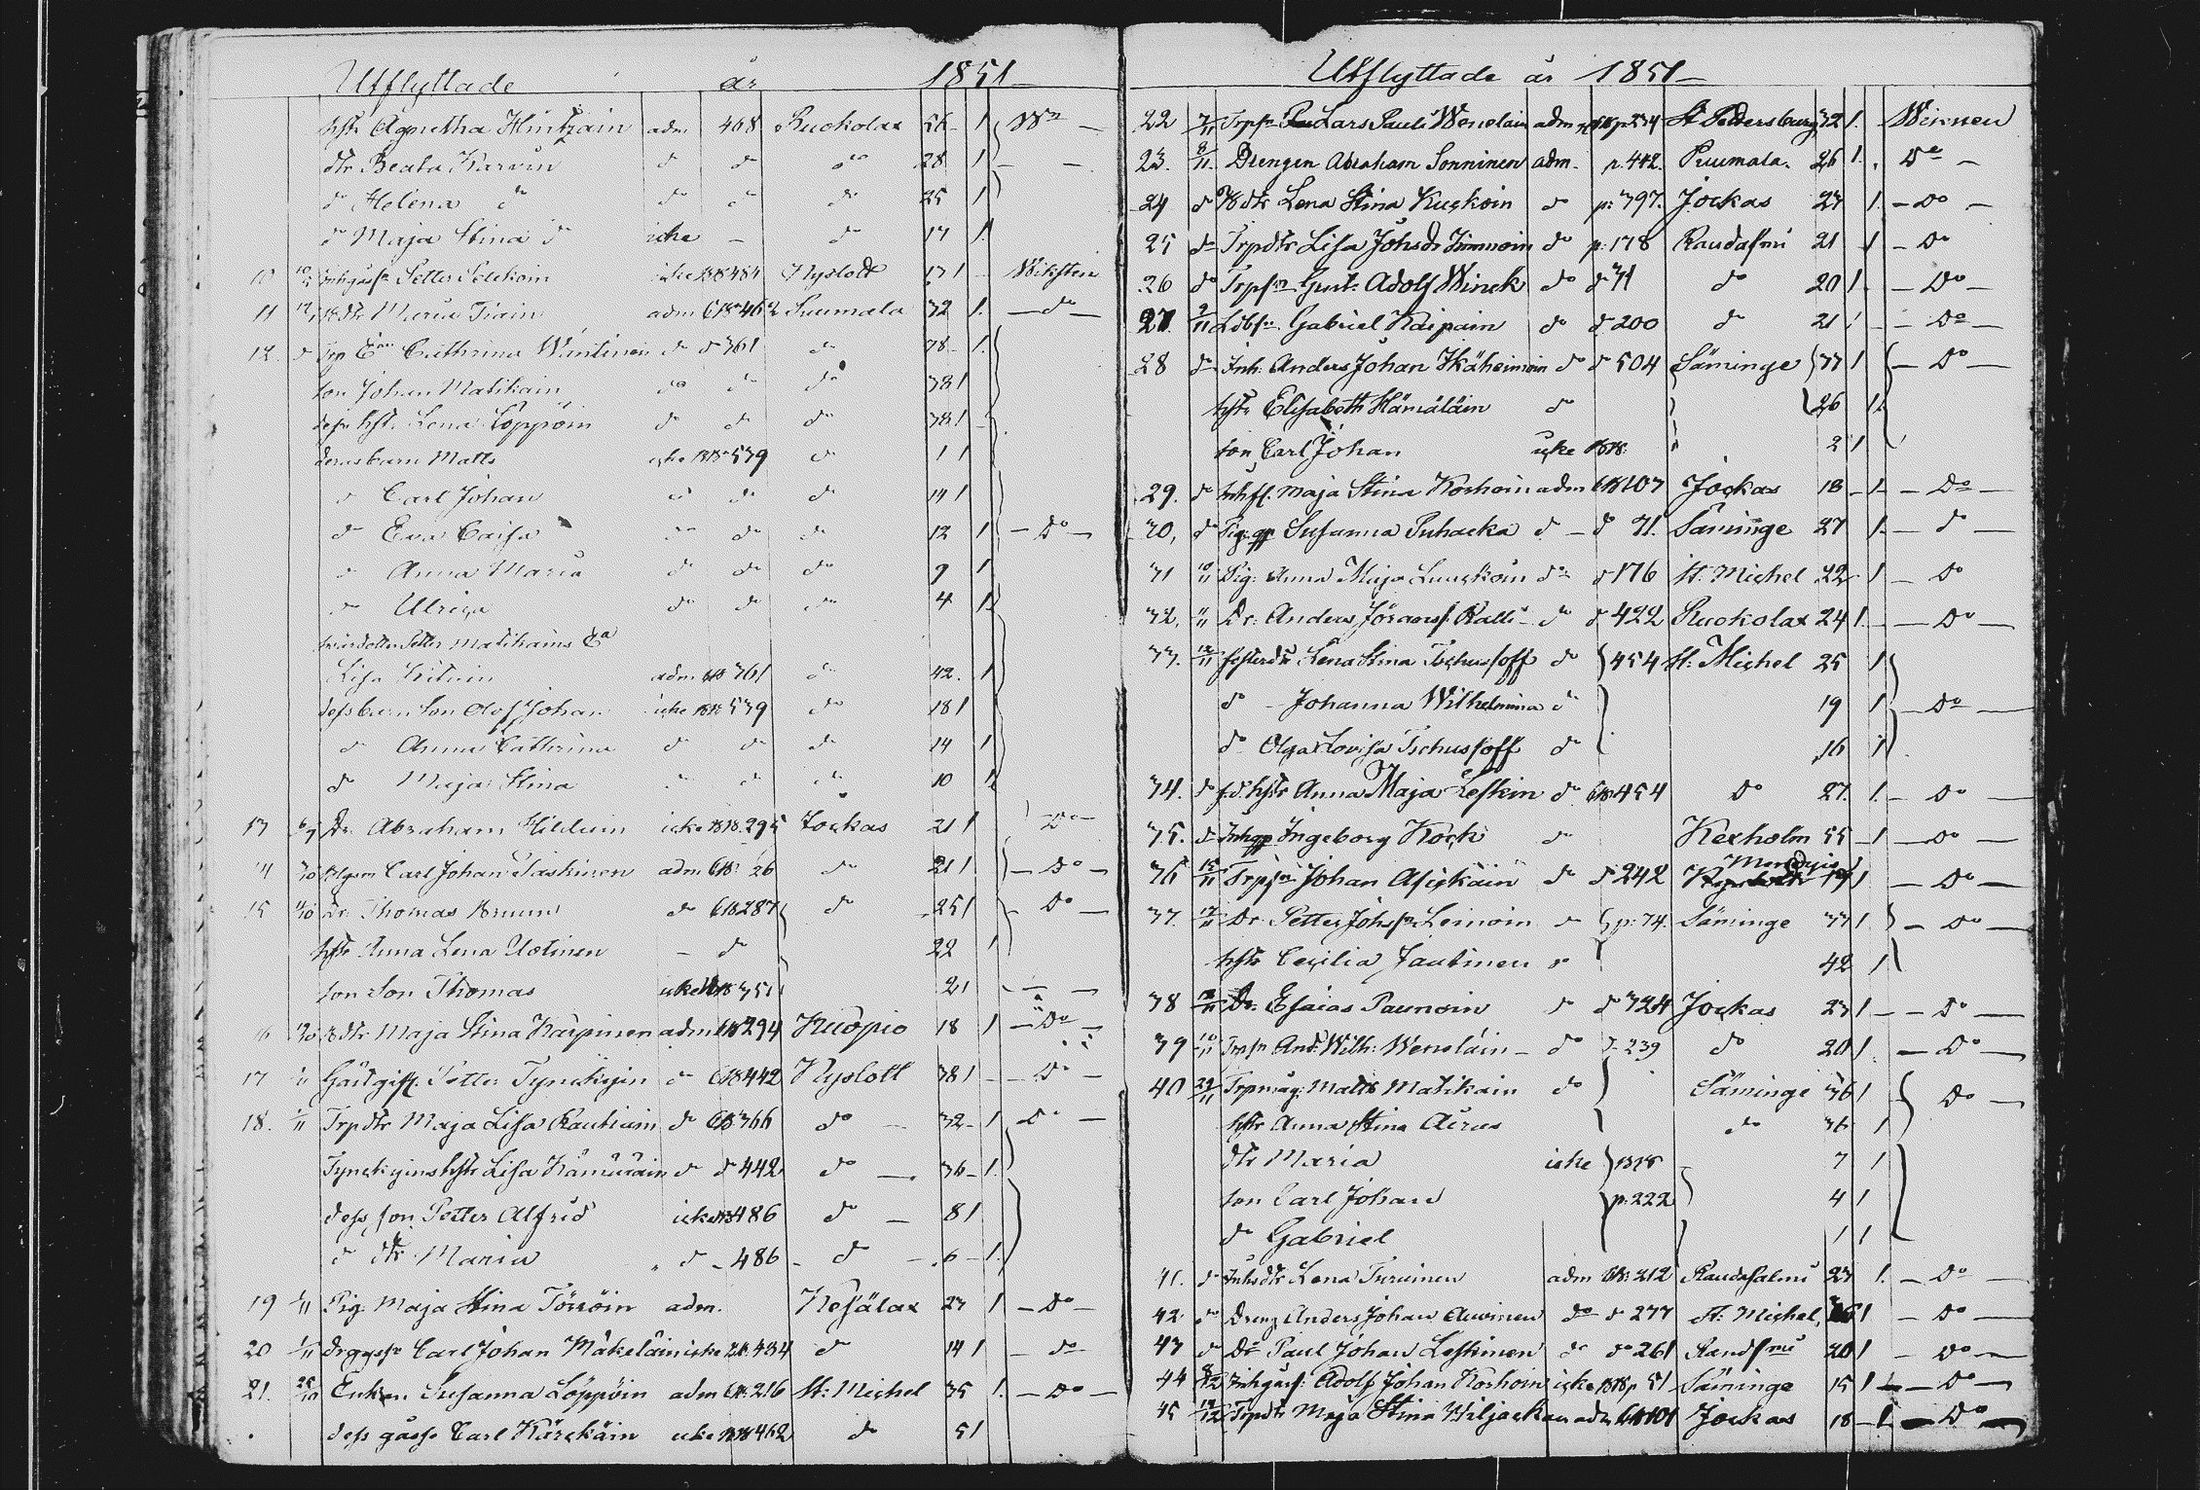 Utflyttade år 1851
hstr Agnetha Hintzain adm 468 Ruokolax 56 1 Wn
dtr Beata Karvin do do do 28 1
do Helena do do do do 25 1
do Maja Stina do icke do 17 1
10 Petter icke 484 Nyslott 17 1 Wiksten
11 dtr Maria Tiain adm 462 Puumala 32 1 do
12 do Trp Cathrina Wäntinen do do 361 do 78 1
son Johan Matikain do do do 38 1
dess hst. Lena Löppöin do do do 38 1
deras barn Matts icke 539 do 1 1
do Carl Johan do do do 14 1
do Eva Caisa do do do 12 1 Do
do Anna Maria do do do 9 1
do Ulrica do do do 4 1
Petter Matikains Ea
Lisa adm 361 do 42 1
dess barn son Olof Johan icke 539 do 18 1
do Anna Cathrina do do do 14 1
do Maja Stina do do 10 1
13 Dr. Abraham icke 295 Jockas 21 1 Do
14 Carl Johan Laskinen adm 26 do 21 1 Do
15 Dr. Thomas do 287 do 25 1 Do
hstr Anna Lena Uotinen do 22 1
son Thomas icke 351 2 1
16 dtr Maja Stina Karpinen adm 294 Kuopio 18 1 Do
17 Petter Tynckynen do 442 Nyslott 38 1 Do
18. Trpdtr Maja Lisa Rautiain do 366 do 32 1 Do
hstr Lisa Hämäläin do do 442 do 36 1
dess son Petter Alfrid icke 486 do 8 1
do dtr Maria do 486 do 6 1
19 1/11 Pig. Maja Stina Törröin adm. Kesälax 27 1 Do
20 1/11 Carl Johan Mäkeläin icke 434 do 14 1 do
21. 28/10 Enkan Susanna Löppöin adm 216 St: Michel 35 1 Do
dess gosse Carl Kärckäin icke 462 do 5 1
Utflyttade år 1851
22 7/11 Trpsn Lars Pauli Wenelain adm p 234 St Petersburg 32 1. Weinnen
23. 8/11 Drengen Abraham Sonninen adm. p. 442. Puumala. 26 1. Do
24 do dtr Lena Stina Kuckoin do p: 397. Jockas 27 1. Do
25 do Trpdtr Lisa Johsdr Immoin do p. 178 Randasmi 21 1 Do
26 do Trpsn Gust: Adolf Winck do do 71 do 20 1. Do
27. 9/11 Gabriel Kaipain do do 200 do 21 1 Do
28 do Inh. Anders Johan Ikäheimoin do do 504 Säminge 37 1 Do
hstr Elisabeth Hämäläin do 26 1
son Carl Johan icke 2 1
29. do Maja Stina Korhoin adm 207 Jockas 18 1 Do
30, do Susanna Puhacka do do 71. Säminge 27 1 do
31 10/11 Pig: Anna Maja Luuckoin do do 176 St. Michel 22 1 Do
32, 11/11 Dr. Anders Jöranss. Ralli do do 422 Ruokolax 24 1 Do
33. 12/11 fosterdr Lena Stina Tschussoff do 454 St: Michel 25 1
do Johanna Wilhelmina do 19 1 Do
do Olga Lovisa Tschussoff do 16 1
34. do f.d. hstr Anna Maja Leskin do 454 Do 27. 1. Do
35. do Ingeborg Kock do Kexholm 55 1 Do
36 15/11 Trpsn Johan Asickäin do do 242 1 Do
37. 17/11 Dr Petter Johsn Leinoin do p: 74. Säminge 37 1 Do
hstr Cecilia Jantinen do 42 1
38 Dr. Esaias Paunoin do do 324 Jockas 27 1 Do
39 Trpsn And: Wilh: Wenelain do 239 do 20 1. Do
40 24/11 Matts Matikain do Säminge 36 1 Do
hstr Anna Stina Airas do 36 1
dtr Maria icke 7 1
son Carl Johan p: 222 4 1
do Gabriel 1 1
41. do Inhsdtr Lena Turuinen adm 212 Randasalmi 27 1. Do
42 do Dreng Anders Johan Auvinen do do 277 St: Michel 1 Do
43 do Dr Paul Johan Leskinen do do 261 Randsmi 20 1 Do
44 Adolf Johan Korhoin icke p 51 Säminge 15 1 Do
45 Trpdtr Maja Stina Wiljackain adm 101 Jockas 18 1 Do